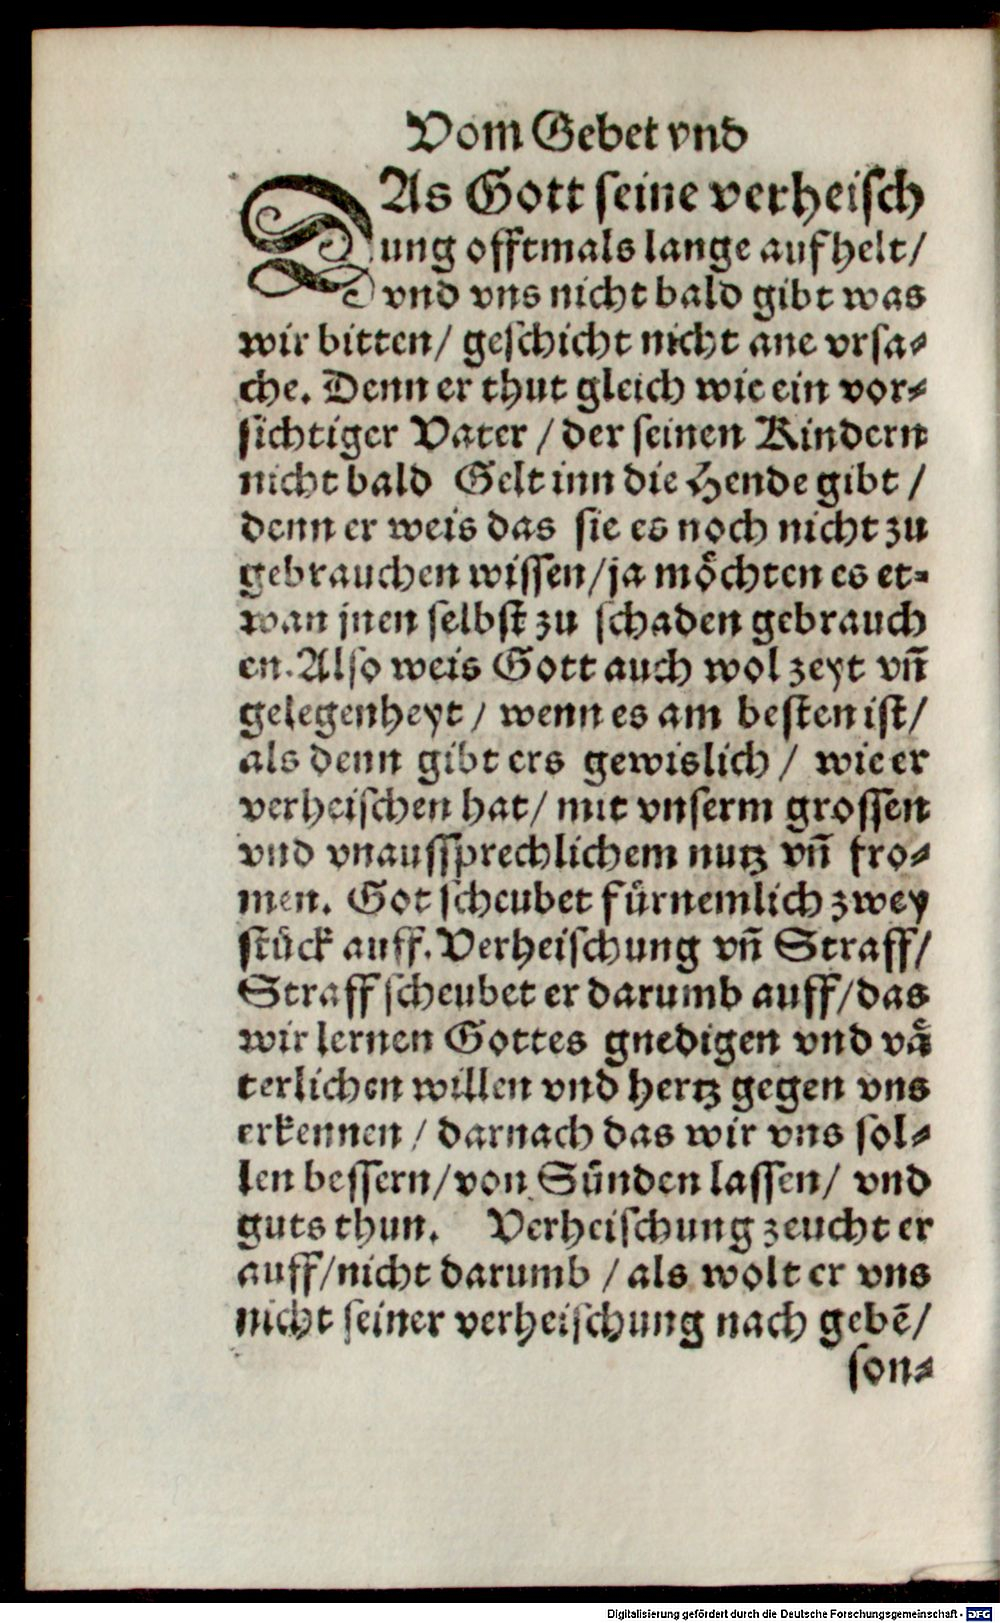 Vom Gebet vnd
DAs Gott seine verheisch
ung offtmals lange aufhelt/
vnd vns nicht bald gibt was
wir bitten/ geschicht nicht ane vrsa⸗
che. Denn er thut gleich wie ein vor⸗
sichtiger Vater / der seinen Kindern
nicht bald Gelt inn die Hende gibt /
denn er weis das sie es noch nicht zu
gebrauchen wissen/ja moͤchten es et⸗
wan jnen selbst zu schaden gebrauch
en. Also weis Gott auch wol zeyt vn̄
gelegenheyt / wenn es am besten ist/
als denn gibt ers gewislich / wie er
verheischen hat/ mit vnserm grossen
vnd vnaussprechlichem nutz vn̄ fro⸗
men. Got scheubet fuͤrnemlich zwey
stuͤck auff. Verheischung vn̄ Straff/
Straff scheubet er darumb auff/das
wir lernen Gottes gnedigen vnd vaͤ
terlichen willen vnd hertz gegen vns
erkennen / darnach das wir vns sol⸗
len bessern/von Suͤnden lassen/ vnd
guts thun. Verheischung zeucht er
auff/nicht darumb / als wolt er vns
nicht seiner verheischung nach gebē/
son⸗
Digitalisierung gefördert durch die Deutsche Forschungsgemeinschaft - DFG